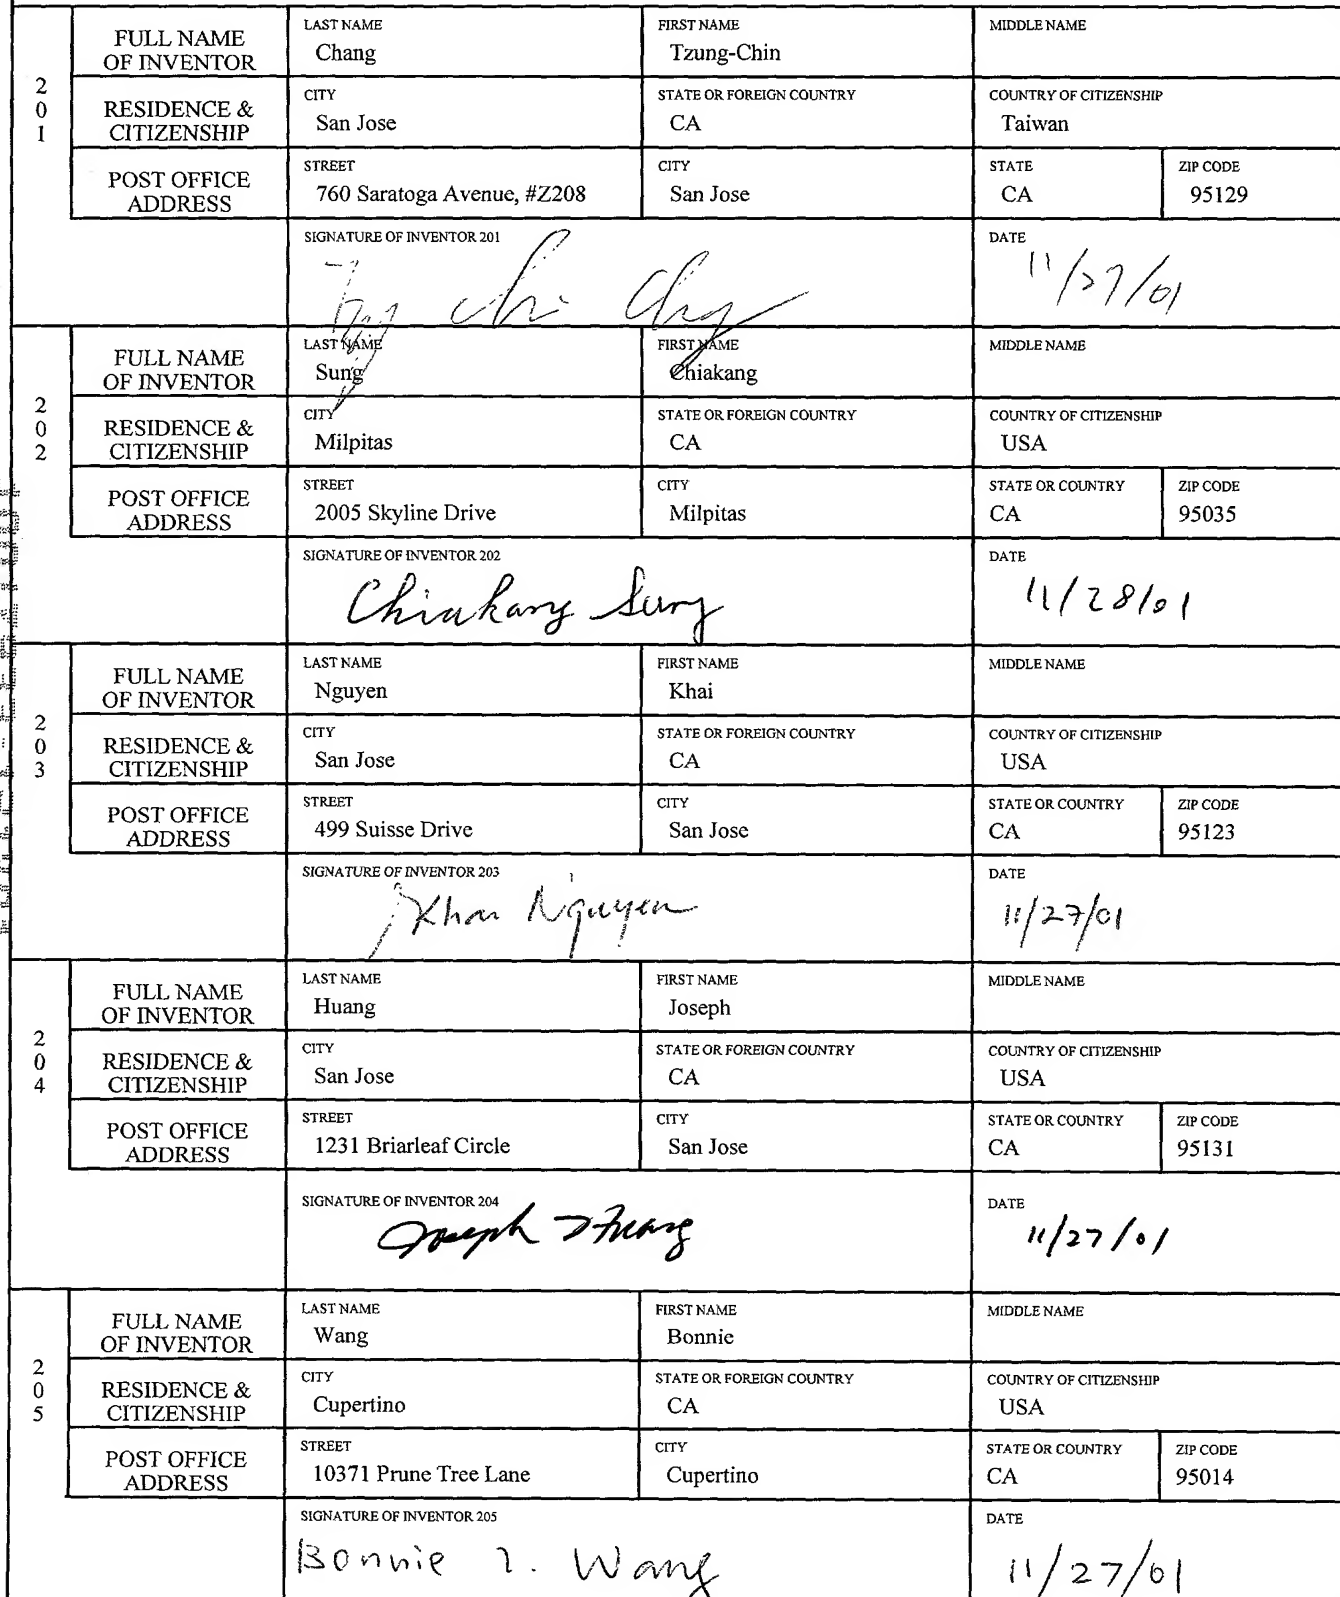 201
FULL NAME OF INVENTOR
LAST NAME
Chang
FIRST NAME
Tzung-Chin
MIDDLE NAME
RESIDENCE & CITIZENSHIP
CITY
San Jose
STATE OR FOREIGN COUNTRY
CA
COUNTRY OF CITIZENSHIP
Taiwan
POST OFFICE ADDRESS
STREET
760 Saratoga Avenue, #Z208
CITY
San Jose
STATE
CA
ZIP CODE
95129
SIGNATURE OF INVENTOR 201
DATE
11/27/01
202
FULL NAME OF INVENTOR
LAST NAME
Sung
FIRST NAME
Chiakang
MIDDLE NAME
RESIDENCE & CITIZENSHIP
CITY
Milpitas
STATE OR FOREIGN COUNTRY
CA
COUNTRY OF CITIZENSHIP
USA
POST OFFICE ADDRESS
STREET
2005 Skyline Drive
CITY
Milpitas
STATE OR COUNTRY
CA
ZIP CODE
95035
SIGNATURE OF INVENTOR 202
Chiakang Sung
DATE
11/28/01
203
FULL NAME OF INVENTOR
LAST NAME
Nguyen
FIRST NAME
Khai
MIDDLE NAME
RESIDENCE & CITIZENSHIP
CITY
San Jose
STATE OR FOREIGN COUNTRY
CA
COUNTRY OF CITIZENSHIP
USA
POST OFFICE ADDRESS
STREET
499 Suisse Drive
CITY
San Jose
STATE OR COUNTRY
CA
ZIP CODE
95123
SIGNATURE OF INVENTOR 203
Khai Nguyen
DATE
11/27/01
204
FULL NAME OF INVENTOR
LAST NAME
Huang
FIRST NAME
Joseph
MIDDLE NAME
RESIDENCE & CITIZENSHIP
CITY
San Jose
STATE OR FOREIGN COUNTRY
CA
COUNTRY OF CITIZENSHIP
USA
POST OFFICE ADDRESS
STREET
1231 Briarleaf Circle
CITY
San Jose
STATE OR COUNTRY
CA
ZIP CODE
95131
SIGNATURE OF INVENTOR 204
Joseph Huang
DATE
11/27/01
205
FULL NAME OF INVENTOR
LAST NAME
Wang
FIRST NAME
Bonnie
MIDDLE NAME
RESIDENCE & CITIZENSHIP
CITY
Cupertino
STATE OR FOREIGN COUNTRY
CA
COUNTRY OF CITIZENSHIP
USA
POST OFFICE ADDRESS
STREET
10371 Prune Tree Lane
CITY
Cupertino
STATE OR COUNTRY
CA
ZIP CODE
95014
SIGNATURE OF INVENTOR 205
Bonnie I. Wang
DATE
11/27/01